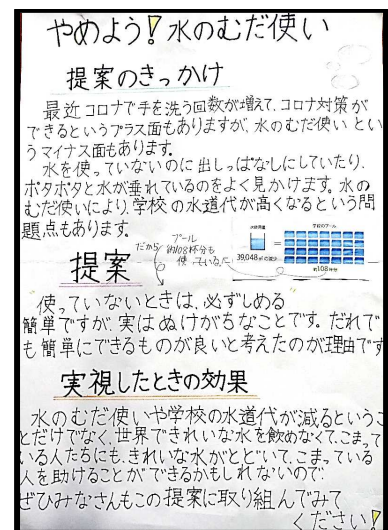 やめよう!水のむだ使い
提案のきっかけ
最近コロナで手を洗う回数が増えて、コロナ対策が
できるというプラス面もありますが、水のむだ使いとい
うマイナス面もあります。
水を使っていないのに出しっぱなしにしていたり、
ポタポタと水が垂れているのをよく見かけます。水の
むだ使いにより、学校の水道代が高くなるという問
題点もあります。
だから
プール
約108杯分も
使っている
39,048
学校のプール
約108杯分
提案
使っていないときは、必ずしめる
簡単ですが、実はぬけがちなことです。だれで
も簡単にできるものが良いと考えたのが理由です
実視したときの効果
水のむだ使いや学校の水道代が減るというこ
とだけでなく、世界できれいな水を飲めなくて、こまって
いる人たちにも、きれいな水がとどいて、こまっている
人を助けることができるかもしれないので
ぜひみなさんもこの提案に取り組んでみて
ください!